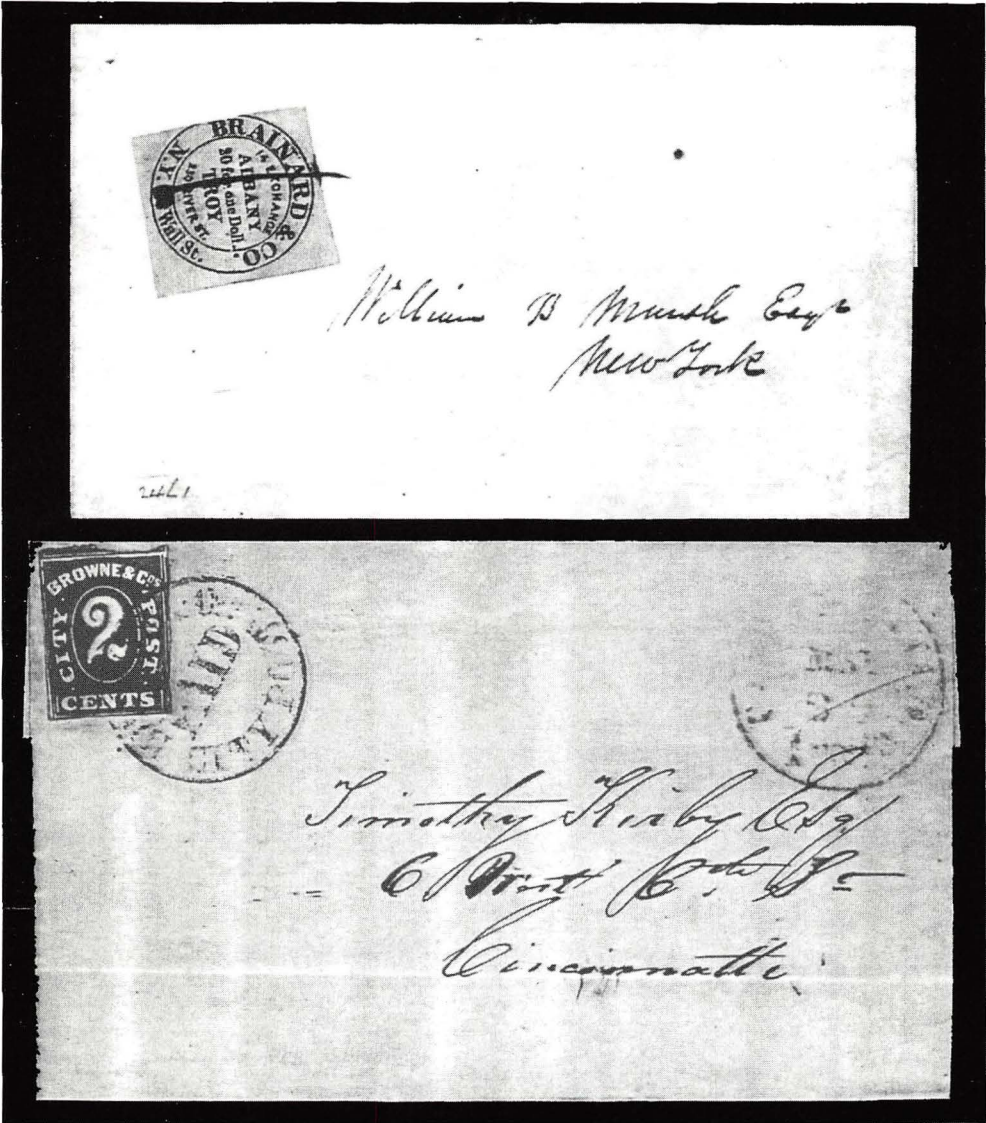 BRAINARD & CO
N.Y.
Wall St.
IN EXCHANGE
ALBANY
20 for one Doll.
TROY
RIVER ST.
William B Marsh Esqr
New York
24L1
BROWNE & Cos.
CITY POST
2
CENTS
PAID
Timothy Kirby Esq
6 West 6th St
Cincinnatti